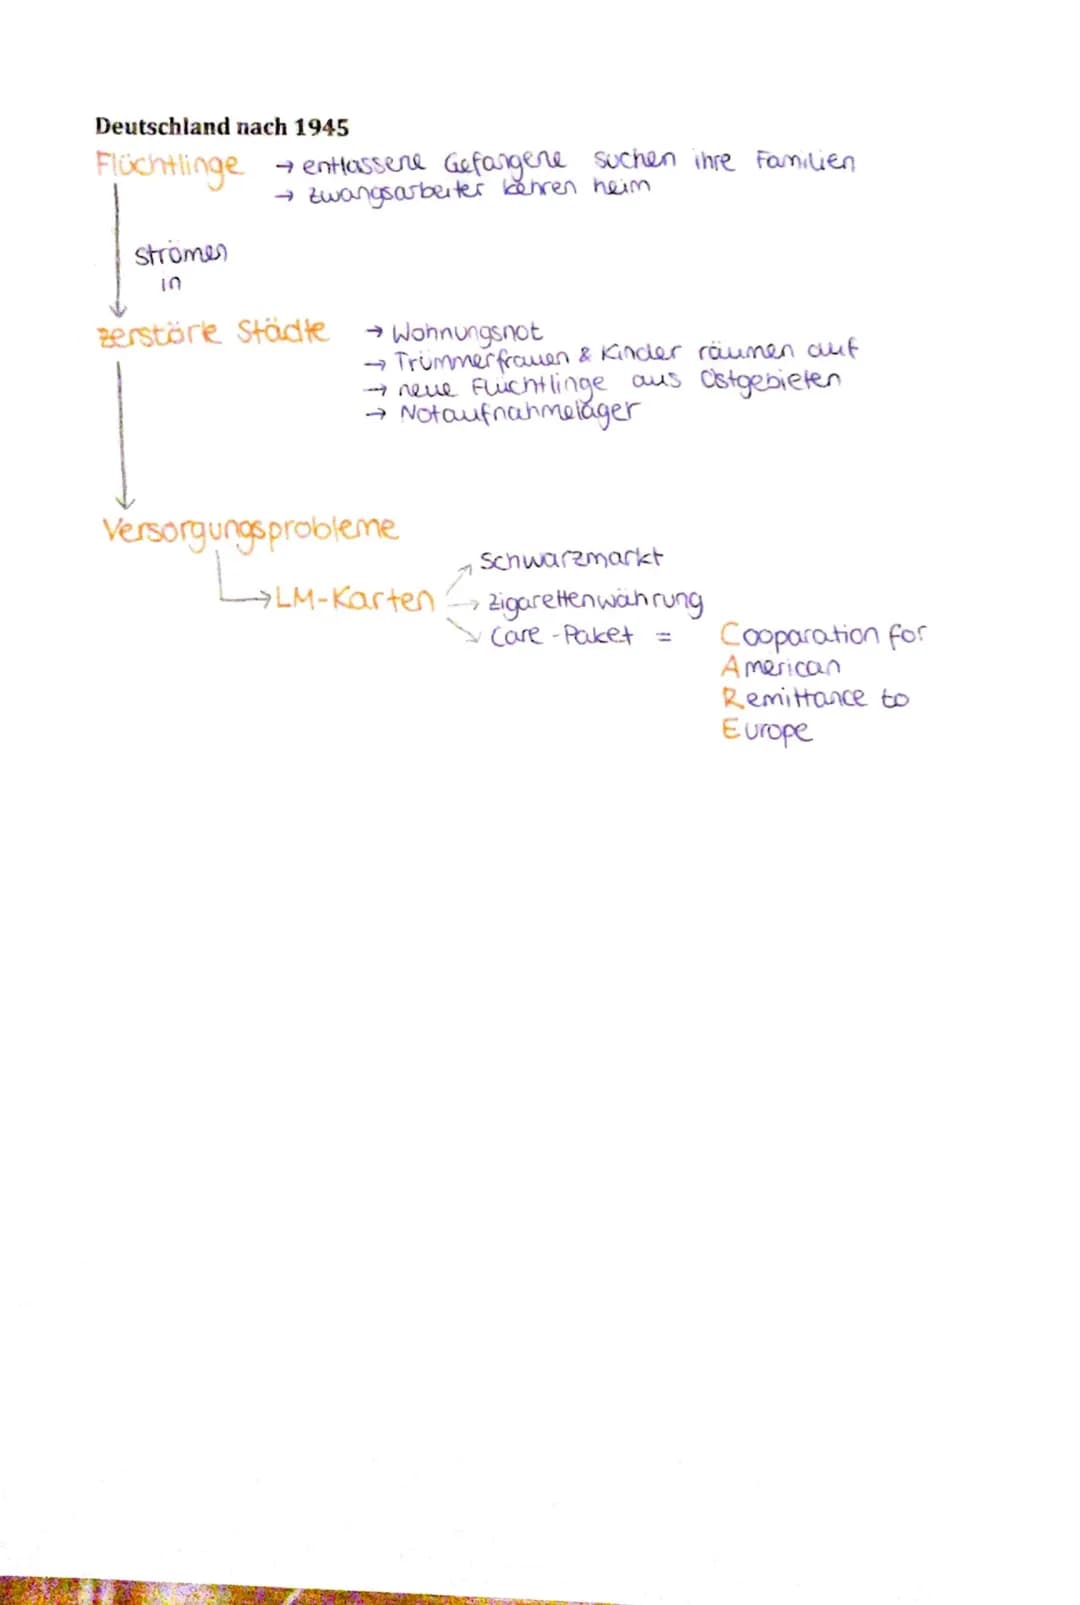 Deutschland nach 1945
Flüchtlinge → entlassene Gefangene suchen ihre Familien
→ Zwangsarbeiter kehren heim
strömen
in
zerstörte Städte → Wohnungsnot
→ Trümmerfrauen & Kinder räumen auf
→ neue Flüchtlinge aus Ostgebieten
→ Notaufnahmelager
Versorgungsprobleme
Schwarzmarkt
→ LM-Karten → Zigarettenwährung
Care-Paket = Cooparation for
American
Remittance to
Europe